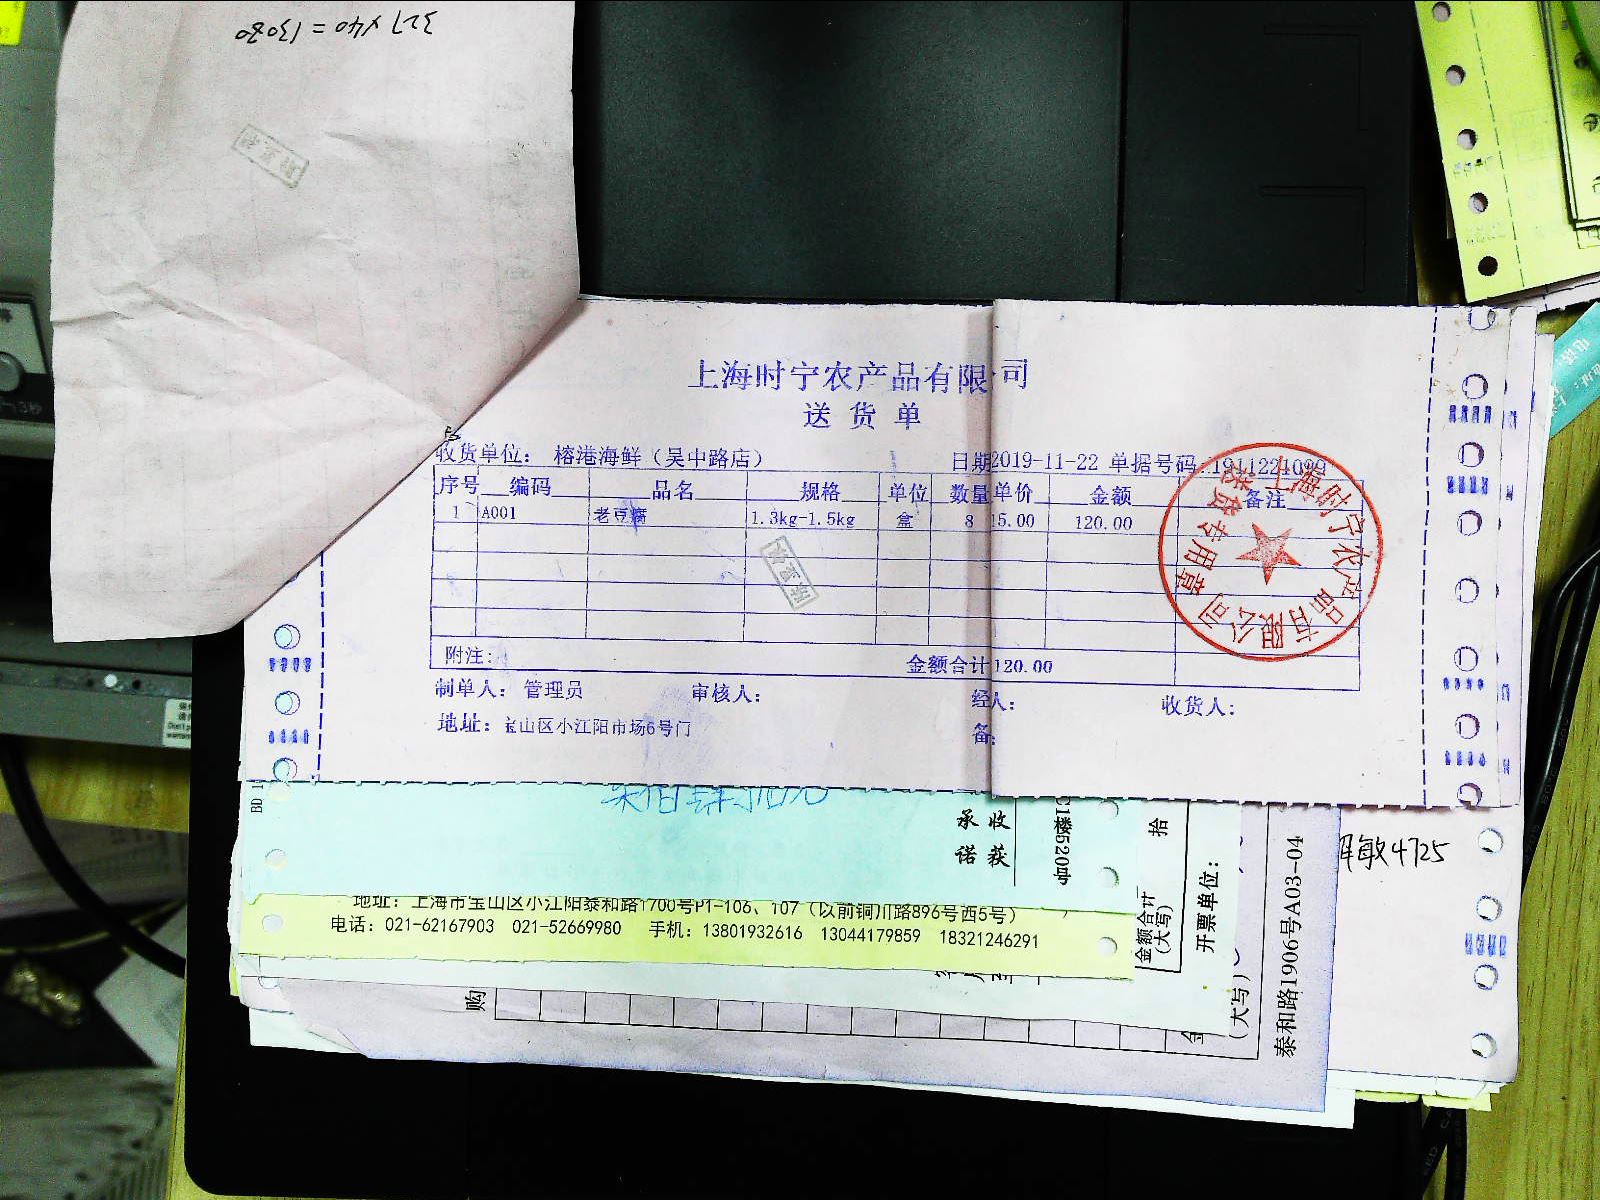 327×40=13080
上海时宁农产品有限 司
送 货 单
收货单位： 榕港海鲜（吴中路店） 日期 2019-11-22 单据号码：1911221099
序号 编码 品名 规格 单位 数量 单价 金额 备注
1 A001 老豆腐 1.3kg-1.5kg 盒 8 15.00 120.00
附注： 金额合计 120.00
制单人： 管理员 审核人： 经 人： 收货人：
地址：宝山区小江阳市场6号门 备：
上海时宁农产品有限公司
送货专用章
承诺
收获
C1楼520号
拾
金额合计
(大写)
开票单位：
地址：上海市宝山区小江阳泰和路1700号P1-106、107（以前铜川路896号西5号）
电话：021-62167903 021-52669980 手机：13801932616 13044179859 18321246291
购
(大写)
泰和路1906号A03-04
敏4725